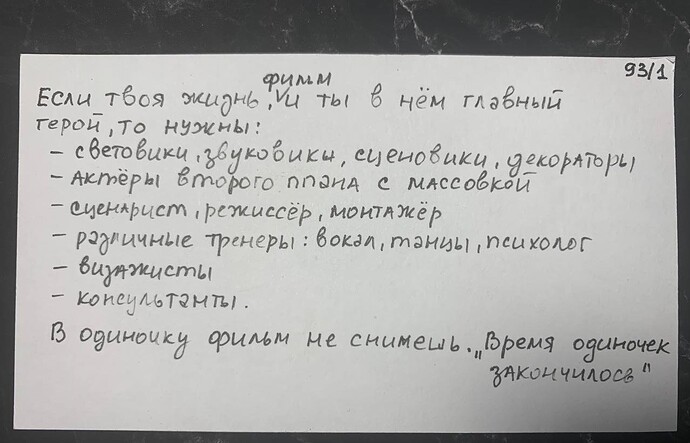 93/1
Если твоя жизнь, фильм и ты в нём главный
герой, то нужны:
- световики, звуковики, сценовики, декораторы
- Актёры второго плана с массовкой
- сценарист, режиссёр, монтажёр
- различные тренеры: вокал, танцы, психолог
- визажисты
- консультанты.
В одиночку фильм не снимешь. „Время одиночек
закончилось"